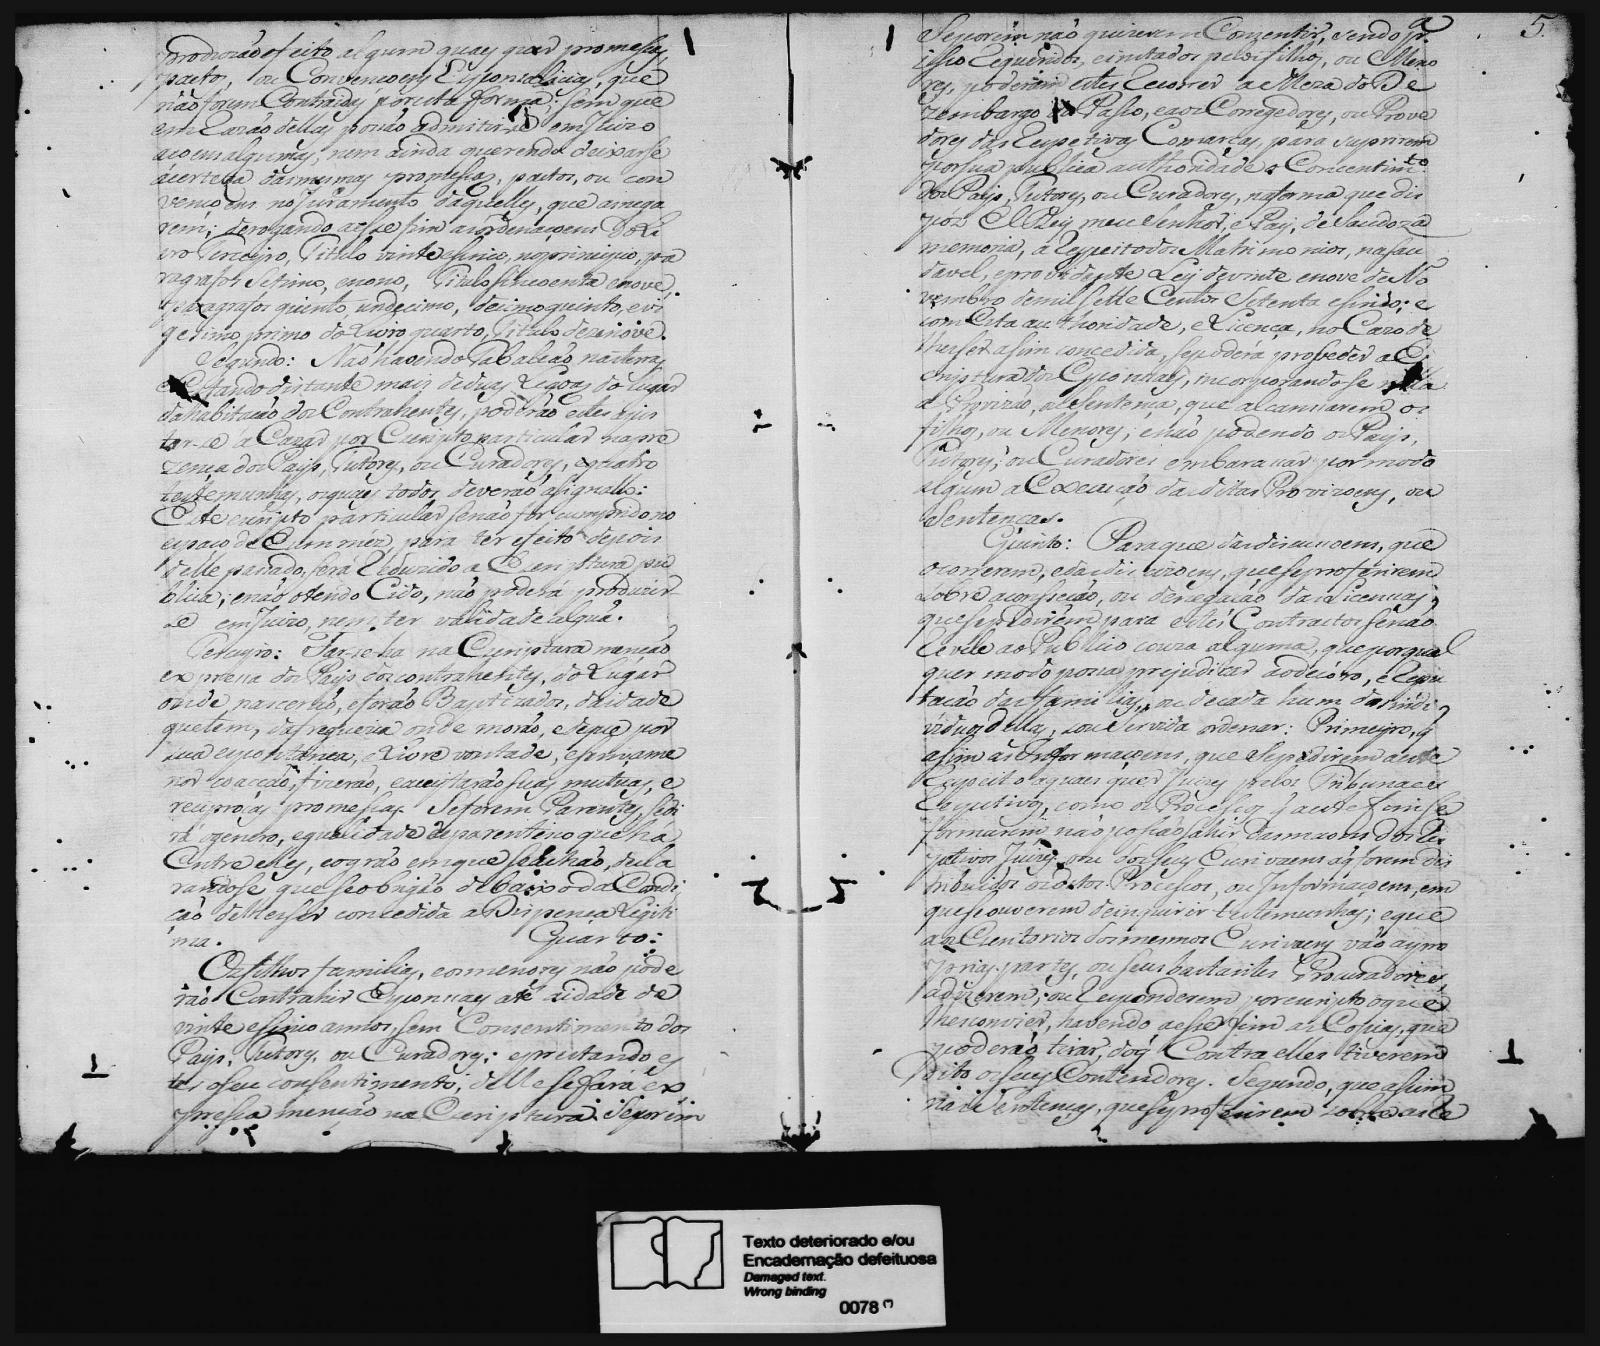 produzaõ efeito algum quaes quer promessas,
pactos, ou Convencoens Esponsalicias, que
não forem Contrahidas por esta forma; sem que
em Razaõ dellas possaõ admitirse em Juizo
acoens algumas; nem ainda querendo deixarse
á certeza das mesmas promessas, pactos, ou con
vencoens no juramento daquelles, que as nega
rem; derogando a esse fim as ordenaçoens do Li
vro Terceyro, Titulo vinte e sinco, no principio, pa
ragrafos Setimo, e nono, Titulo sincoenta e nove
paragrafos quinto, undecimo, decimo quinto, e vi
gesimo primo do Livro quarto, Titulo dezanove.
Segundo: Naõ havendo Tabaliaõ na terra,
e Estando distante mais de duas Legoas do lugar
da habitaçaõ dos Contrahentes, poderaõ estes ajus
tar-se a Cazar por Escripto particular na pre
zença dos Pays, Tutores, ou Curadores, e quatro
testemunhas, os quaes todos deveraõ asignallo:
Este escripto particular se naõ for cumprido no
espaço de hum mez, para ter efeito depois
delle passado, será Reduzido a Escriptura pu
blica; e naõ o sendo Cido, naõ poderá produzir
se em Juizo, nem ter validade algua.
Terceyro: Far-se-ha na Escriptura mençaõ
expressa dos Pays dos contrahentes, do Lugar
onde nasceraõ, e foraõ Baptizados, da idade
que tem, da freguezia onde moraõ, e se he por
sua espontanea, e Livre vontade, e sem a me
nor coacçaõ, fizeraõ, e aceitaraõ suas mutuas, e
reciprocas promessas. Se forem Parentes, se di
rá o genero, e qualidade de parentesco que ha
Entre elles, e o gráo em que se achaõ, decla
randose que se obrigaõ debaixo da Condi
çaõ de lhe ser concedida a Dispensa Legiti
ma. Quarto:
Os filhos familias, e os menores naõ pode
ráõ Contrahir Esponsaes até a idade de
vinte e sinco annos, sem Consentimento dos
Pays, Tutores, ou Curadores; e prestando es
tes o seu consentimento, delle se fará ex
pressa mençaõ na Escriptura. Se porém
5.
Se porém naõ quizerem Consentir, sendo p.ª
isso Requeridos, e instados pelos filhos, ou Meno
res, poderaõ estes Recorrer a Meza do De
zembargo do Passo, e aos Corregedores, ou Prove
dores das Respetivas Comarcas, para suprirem
por sua publica authoridade o Concentim.to
dos Pays, Tutores, ou Curadores, na forma que dis
poz El Rey meu Senhor, e Pay, de Saudoza
memoria, a respeito dos Matrimonios, na sau
davel, e providente Ley de vinte e nove de No
vembro de mil sette Centos Setenta e sinco; e
com Esta authoridade, e Licença, no Cazo de
lhe ser asim concedida, se poderá proseder a Es
criptura dos Esponsaes, incorporandose nella
a Provizaõ, ou Sentença, que alcansarem os
filhos, ou Menores; e naõ podendo os Pays,
Tutores, ou Curadores embarasar por modo
algum a Execuçaõ das ditas Provizoens, ou
Sentenças.
Quinto: Para que das discussoens, que
ocorrerem, e das decizoens, que se proferirem
sobre a conseçaõ, ou denegaçaõ das Licenças,
que se pedirem para estes Contractos se naõ
Revele ao Publico couza alguma, que por qual
quer modo possa prejudicar ao decoro, e Repu
taçaõ das familias, ou de cada hum dos indi
viduos dellas, sou servida ordenar: Primeyro, q̃
asim as Informaçoens, que se pedirem a este
Respeito a quaes quer Juizes pelos Tribunaes
Respetivos, como os Processos q̃ a este fim se
formarem, naõ possaõ sahir das maons dos Res
petivos Juizes, ou dos seus Escrivaens a q̃ forem dis
tribuidos os ditos Processos, ou Informaçoens, em
que se ouverem de inquirir testemunhas; e que
aos Escritorios dos mesmos Escrivaens vaõ as pro
prias partes, ou seus bastantes Procuradores,
a dizerem, ou Responderem por escripto o que
lhe convier, havendo a esse fim as Copias, que
poderaõ tirar, do q̃ Contra elles tiverem
Dito os seus Contendores. Segundo, que asim
nas Sentenças, que se proferirem sobre as Re
Texto deteriorado e/ou
Encadernação defeituosa
Damaged text.
Wrong binding
0078